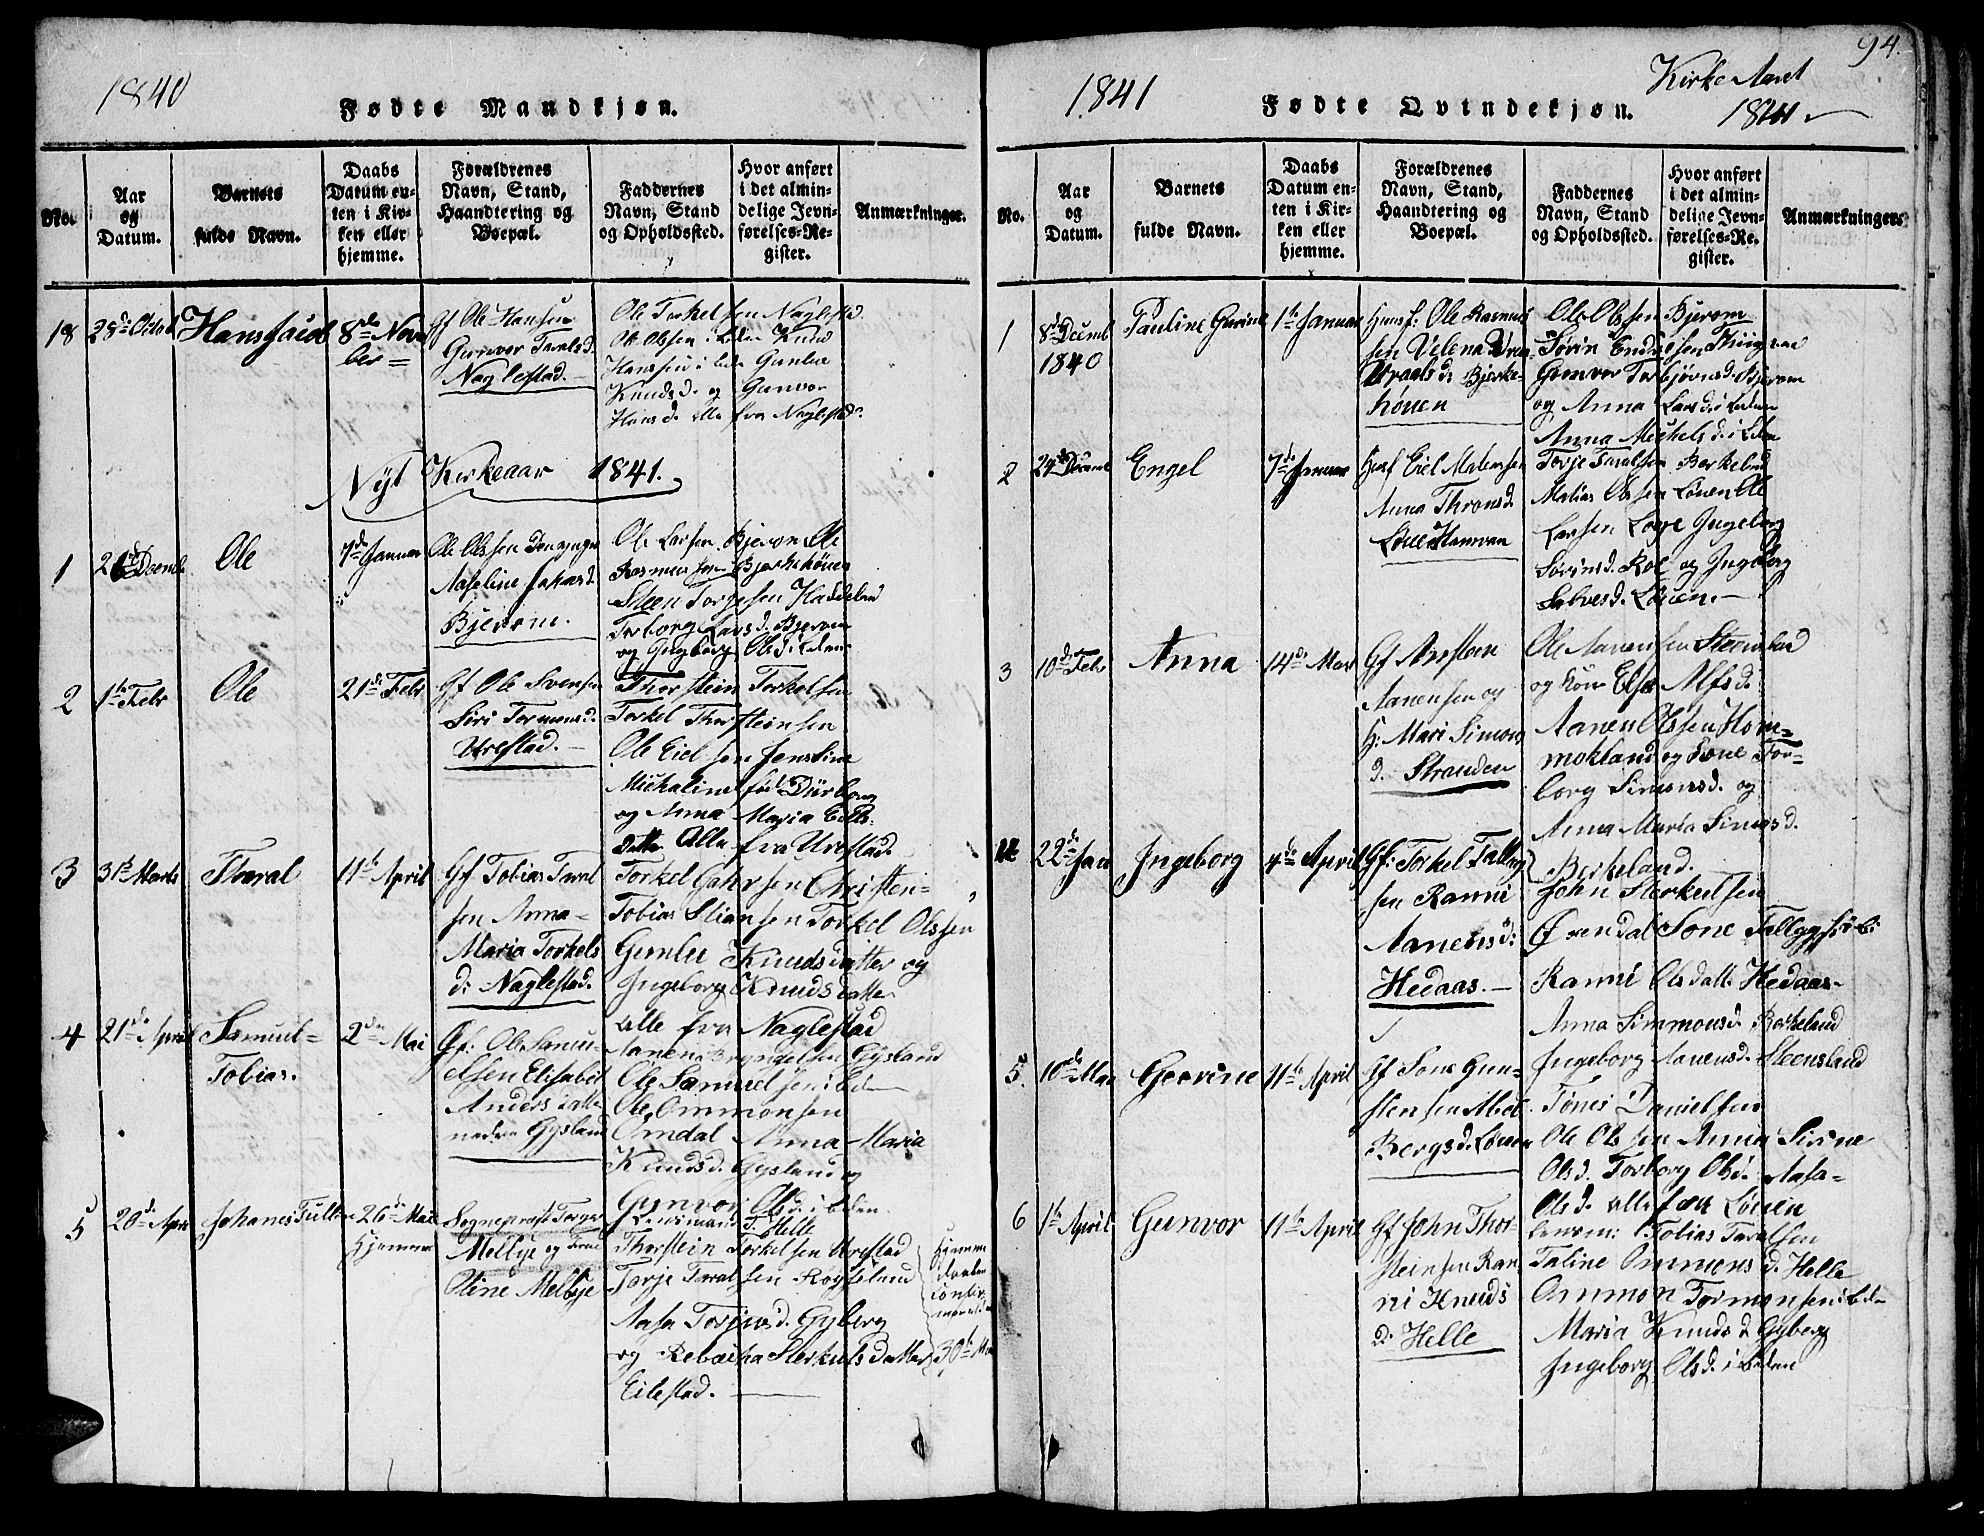 1840
Fødte Mandkjøn.
No.
Aar
og
Datum.
Barnets
fulde Navn.
Daabs
Datum en-
ten i Kir-
ken eller
hjemme.
Forældrenes
Navn, Stand,
Haandtering og
Boepæl.
Faddernes
Navn, Stand
og Opholdssted.
Hvor anført
i det almin-
delige Jevn-
førelses-Re-
gister.
Anmærkninger.
18
28de Octob
Hans Jacob
8de Novem
ber =
Gf Ole Hansen
Gunvor Taralsd.
Naglestad.
Ole Torkelsen Naglestad
Ole Olssen i bden Knud
Hanssen i bdn Gunlu
Knudsd. og Gunvor
Hansd. alle fra Naglestad.
Nyt Kirkeaar 1841.
1
26de Decmb
Ole
7de Januar
Ole Olssen den yngre
Aaseline
Bjerom.
Ole Larsen Bjerom Ole
Rasmussen Bjerkehöuen
Steen Torjesen Haddeland
Torborg Larsd. Bjerom
og Ingborg Olsd. i bden
2
1te Febr
Ole
21de Febr
Gf Ole Svensen
Siri Tormonsd.
Urestad.
Thorstein Torkelsen
Torkel Thorsteinsen
Ole Eielsen Jensine
Michaline fød Dürborg
og Anna Maria Eiels-
Datter Alle fra Urestad.
3
31te Marts
Tharal
11te April
Gf Tobias Taral
sen Anna
Maria Torkels
d: Naglestad.
Torkel Gahrsen Christen-
Tobias Stiansen Torkel Olssen
Gunlu Knudsdatter og
Ingeborg Knudsdatter
alle fra Naglestad
4
21de April
Samuel-
Tobias.
2den Mai
Gf: Ole Samu-
elsen Elisabet
Anders datter
nedre Gysland
Aanen Bryngelsen Gysland
Ole Samuelsen i bd
Ole Ommonsen
Omdal Anna Maria
Knudsd. Gysland og
Gunvor Olsd. i bden.
5
20de April
Johanes Tullin
26de Mai
Hjemme
Sogneprest Torger
Mellbye og Frue
Oline Melbye
Lensmand T. Helle
Thorstein Torkelsen Urestad
Torje Taralsen Røyseland
Aasa Torjusd. Gyberg
og Rebecka Sterkulsdatter
Eilestad.
Hjemme
døbt
confir-
meret
30te Mai
94.
1841
Kirke Aaret
1841
Fødte Qvindekjøn.
No.
Aar
og
Datum.
Barnets
fulde Navn.
Daabs
Datum en-
ten i Kir-
ken eller
hjemme.
Forældrenes
Navn, Stand,
Haandtering og
Boepæl.
Faddernes
Navn, Stand
og Opholdssted.
Hvor anført
i det almin-
delige Jevn-
førelses-Re-
gister.
Anmærkninger.
1
8de Decmb
1840
Pauline Gurine
1te Januar
Husf: Ole Rasmus
sen Velena
Uraalsd: Bjerke-
høuen
Ole Olssen Bjerom
Sørin Endresen
Gunvor Torbjørnsd. Bjerom
og Anna Larsd. i bden
Anna Michelsd. i bdn
2
24de Decmb
Engel
7de Januar
Husf Eiel Matiassen
Anna Thronsd.
Løuehammen
Torje Taralsen Berkeland
Matias Olssen Løuen Ole
Larsen Loge Ingeborg
Sörinsd. Roe og Ingborg
Salvesd. Løuen.
3
10de Febr
Anna
14de Mart
Gf Aresteen
Aanensen og
H: Mari Simons
d. Stranden
Ole Aanensen Steensland
og kone Else Alfsd.
Aanen Olssen Hom-
mokland og kone Tor-
borg Simonsd. og
Anna Maria Simosd.
Berkeland.
4
22de Jan
Ingeborg
4de April
Gf: Torkel Tallag
sen Ranni
Aanensd:
Hedaas.
John Sterkeulsen
Örendal Sone
Ranni Olsdatt. Hedaas
Anna Simmonsd. Berkeland
Ingeborg Aanensd. Steensland
5.
10de Mar
Geerine
11te April
Gf Sone Gun-
stensen
Bergsd. Løuen
Tönes Danielsen
Ole Olssen Anna Sirine
Olsd. Torborg Olsd. Aasa-
Olsd alle fra Løuen
6
1te April
Gunvor
11te April
Gf John Thor-
steinsen Ran
ni Knuds
D. Helle
Lensm: Tobias Taralsen
Taline Ommonsd. Helle
Ommon Tormonsen i bd
Maria Knudsd Gyberg
Ingeborg Olsd. i bden